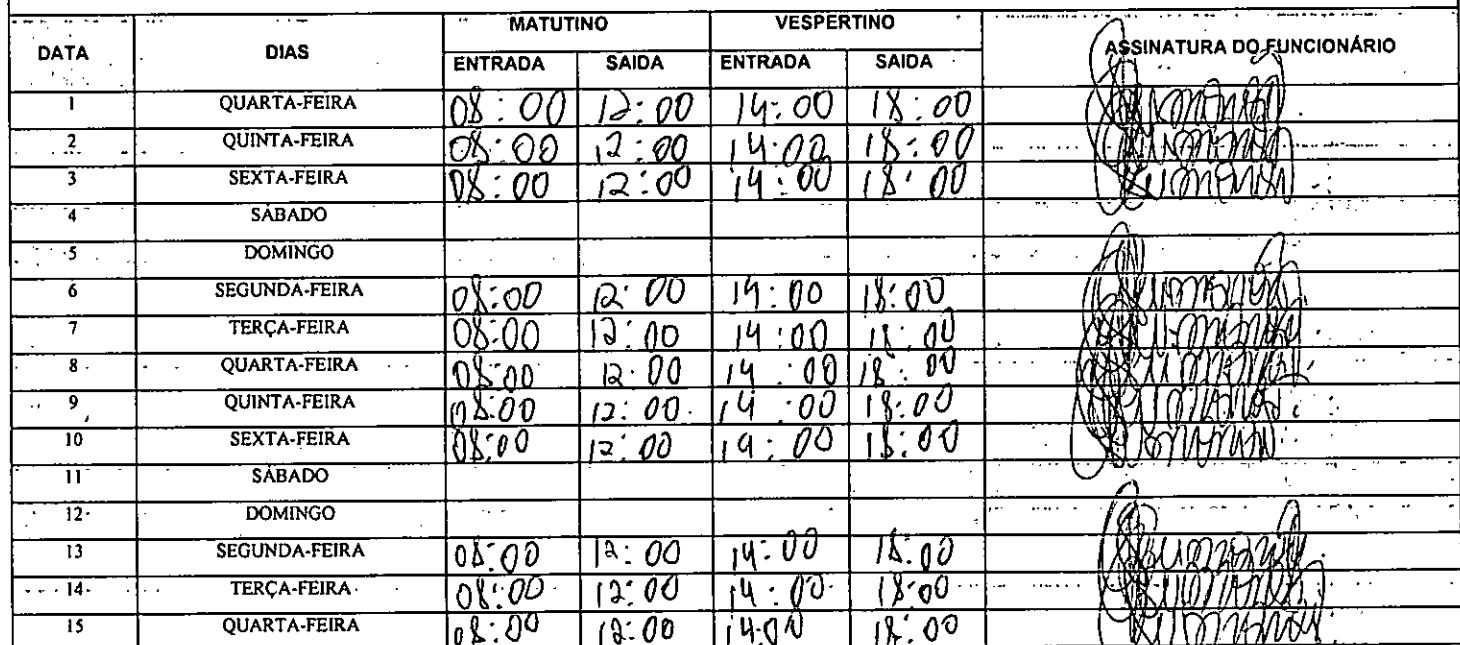 MATUTINO VESPERTINO
DATA DIAS ENTRADA SAIDA ENTRADA SAIDA ASSINATURA DO FUNCIONÁRIO
1 QUARTA-FEIRA 08:00 12:00 14:00 18:00
2 QUINTA-FEIRA 08:00 12:00 14:00 18:00
3 SEXTA-FEIRA 08:00 12:00 14:00 18:00
4 SÁBADO
5 DOMINGO
6 SEGUNDA-FEIRA 08:00 12:00 14:00 18:00
7 TERÇA-FEIRA 08:00 12:00 14:00 18:00
8 QUARTA-FEIRA 08:00 12:00 14:00 18:00
9 QUINTA-FEIRA 08:00 12:00 14:00 18:00
10 SEXTA-FEIRA 08:00 12:00 14:00 18:00
11 SÁBADO
12 DOMINGO
13 SEGUNDA-FEIRA 08:00 12:00 14:00 18:00
14 TERÇA-FEIRA 08:00 12:00 14:00 18:00
15 QUARTA-FEIRA 08:00 12:00 14:00 18:00